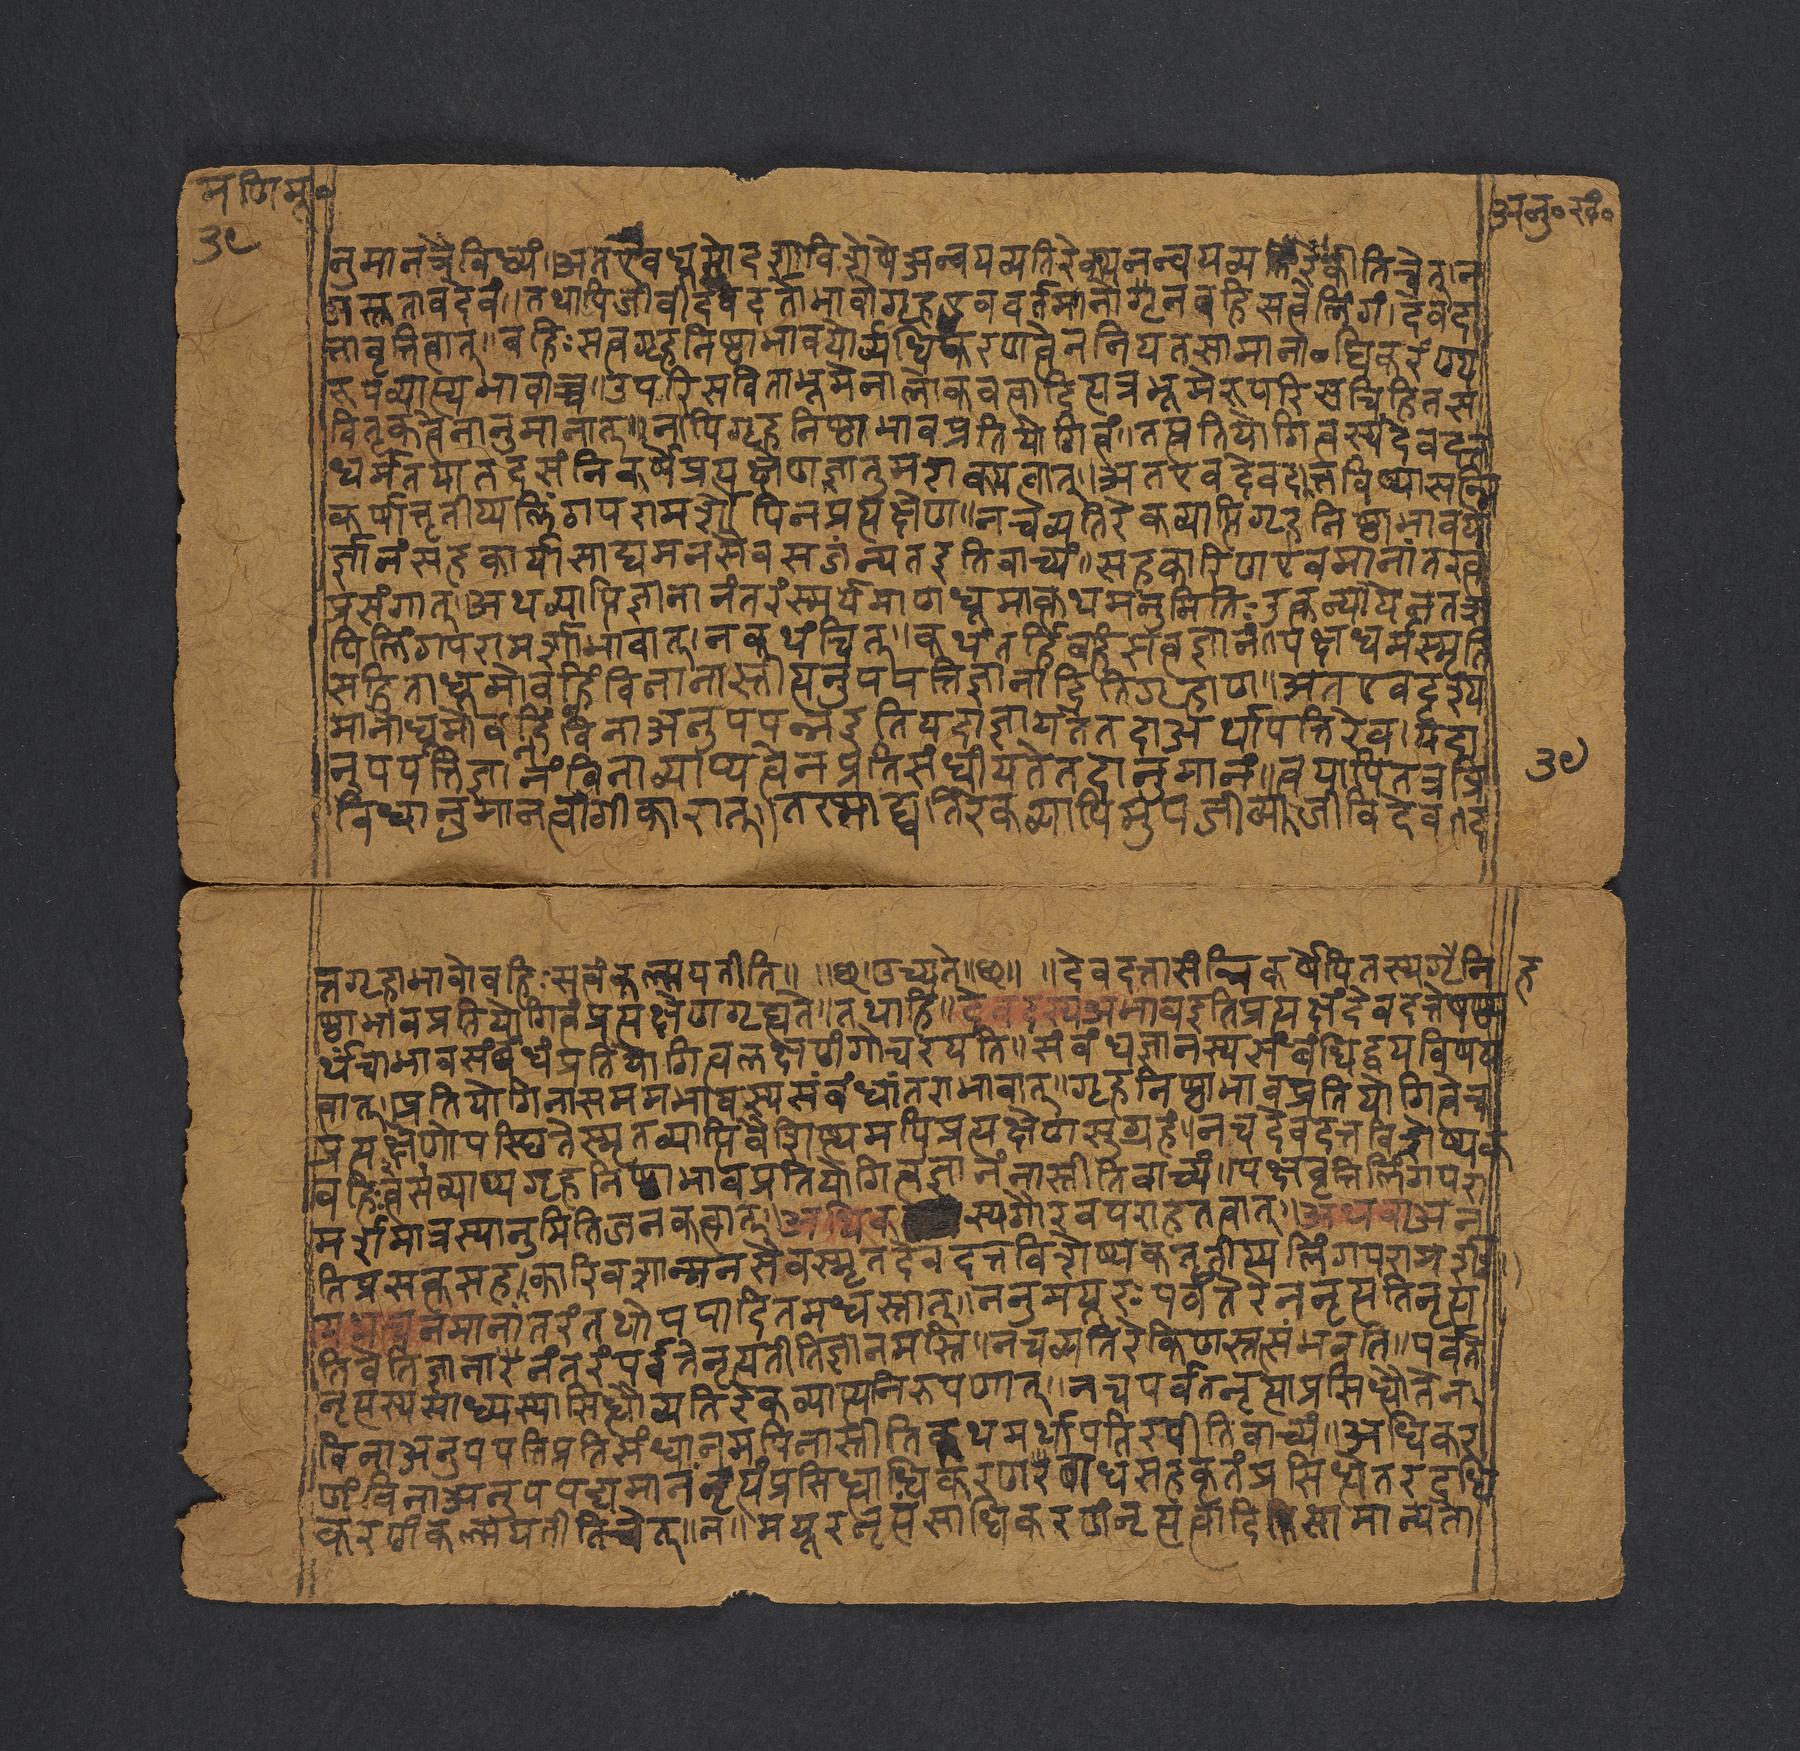 मणिमू॰
३९
अनु॰ खं॰
नुमानत्रैविध्यं॥अतएवधूमोदशाविशेषेअन्वयव्यतिरेक्यनन्वयव्य रेकीतिचेत्।न
अस्तुतावदेवं॥तथापिजीवीदेवदत्ताभावोगृहएववर्तमानोगृनबहिसत्वेलिंगं।देवद
त्तावृत्तित्वात्॥बहिःसत्वगृहनिष्ठाभावयोर्व्यधिकरणत्वेननियतसामाना॰धिकरंण्य
रूपव्याप्यभावाच्च॥उपरिसविताभूमेनालोकवत्वादित्यत्रभूमेरुपरिसन्निहितस
वितृकत्वेनानुमानात्॥नापिगृहनिष्ठाभावप्रतियोगित्वं॥तत्प्रतियोगित्वस्यदेवदत्त
धर्मतयातदसंनिकर्षेप्रत्यक्षेणज्ञातुमशक्यत्वात्॥अतएवदेवदत्तविष्यासन्नि
कर्षात्तृतीयलिंगपरामर्शोपिनप्रत्यक्षेण॥नचव्यतिरेकव्याप्तिगृहनिष्ठाभावयो
र्ज्ञानंसहकार्यासाद्यमनसैवसजन्यतइतिवाच्यं॥सहकारिणएवमानांतरत्व
प्रसंगात्।अथव्याप्तिज्ञानानंतरंस्मर्यमाणधूमात्कथमनुमितिःउक्तन्यायेनतत्रा
पिलिंगपरामर्शाभावात्।नकथंचित्॥कथंतर्हिवह्निसत्वज्ञानं॥पक्षधर्मस्मृति
सहिताधूमोवह्निंविनानास्तीत्यनुपपत्तिज्ञानादितिगृहाण॥अतएवदृश्य
मानोधूमोवह्निंविनाअनुपपन्नइतियदाज्ञायतेतदाअर्थापत्तिरेव।यदा
नुपपत्तिज्ञानंविनाव्याप्यत्वेनप्रतिसंधीयतेतदानुमानं॥त्वयापितत्रत्रि
विधानुमानत्वांगीकारात्॥तस्माद्व्यतिरेकव्याप्तिमुपजीव्यजीविदेवद
३९
त्तगृहाभावोबहिःसत्वंकल्पयतीति॥ ॥छ॥उच्यते॥छ॥ ॥देवदत्तासंन्निकर्षेपितस्यगृैनि
ह
ष्ठाभावप्रतियोगित्वंप्रत्यक्षेणगृह्यते॥तथाहि॥देवदस्यअभावइतिप्रत्यक्षंदेवदत्तेषष्ठ्य
र्थंचाभावसंबंधंप्रतियोगित्वलक्षणंगोचरयति॥संबंधज्ञानस्यसंबंधिद्वयविषय
त्वात्।प्रतियोगिनासममभावस्यसंबंधांतराभावात्॥गृहनिष्ठाभावप्रतियोगित्वेच
प्रत्यक्षेणोपस्थितेस्मृतव्याप्तिवैशिष्ट्यमपिप्रत्यक्षेणसुग्रहं।नचदेवदत्तविशेष्यक
वहिःत्वसंव्याप्यगृहनिष्ठाभावप्रतियोगित्वज्ञानंनास्तीतिवाच्यं॥पक्षवृत्तिलिंगपरा
मर्शमात्रस्यानुमितिजनकत्वात्॥अधिक स्यगौरवपराहतत्वात्॥अथवाअन
तिप्रसक्तसहकारिवशान्मनसैवस्मृतदेवदत्तविशेष्यकतृतीयलिंगपरामर्शः॥
यथाचनमानांतरंतथोपपादितमधस्तात्॥ननुमयूरःपर्वतेतरेननृत्यतिनृत्य
तिचेतिज्ञानानंतरंपर्वतेनृत्यतीतिज्ञानमस्ति॥नचव्यतिरेकिणस्तत्संभवति॥पर्वत
नृत्यस्यसाध्यस्यासिध्यौव्यतिरेकव्याप्यनिरूपणात्॥नचपर्वतनृत्याप्रसिध्यौतेन
विनाअनुपपत्तिप्रतिसंधानमपिनास्तीतिकथमर्थापतिरपीतिवाच्यं॥अधिकर
णंविनाअनुपपद्यमानंनृत्यंप्रसिध्याधिकरणबाधसहकृतंप्रसिध्येतरदधि
करणंकल्पयतीतिचेत्॥न॥मयूरनृत्यंसाधिकरणंनृत्यत्वादितिसामान्यतो